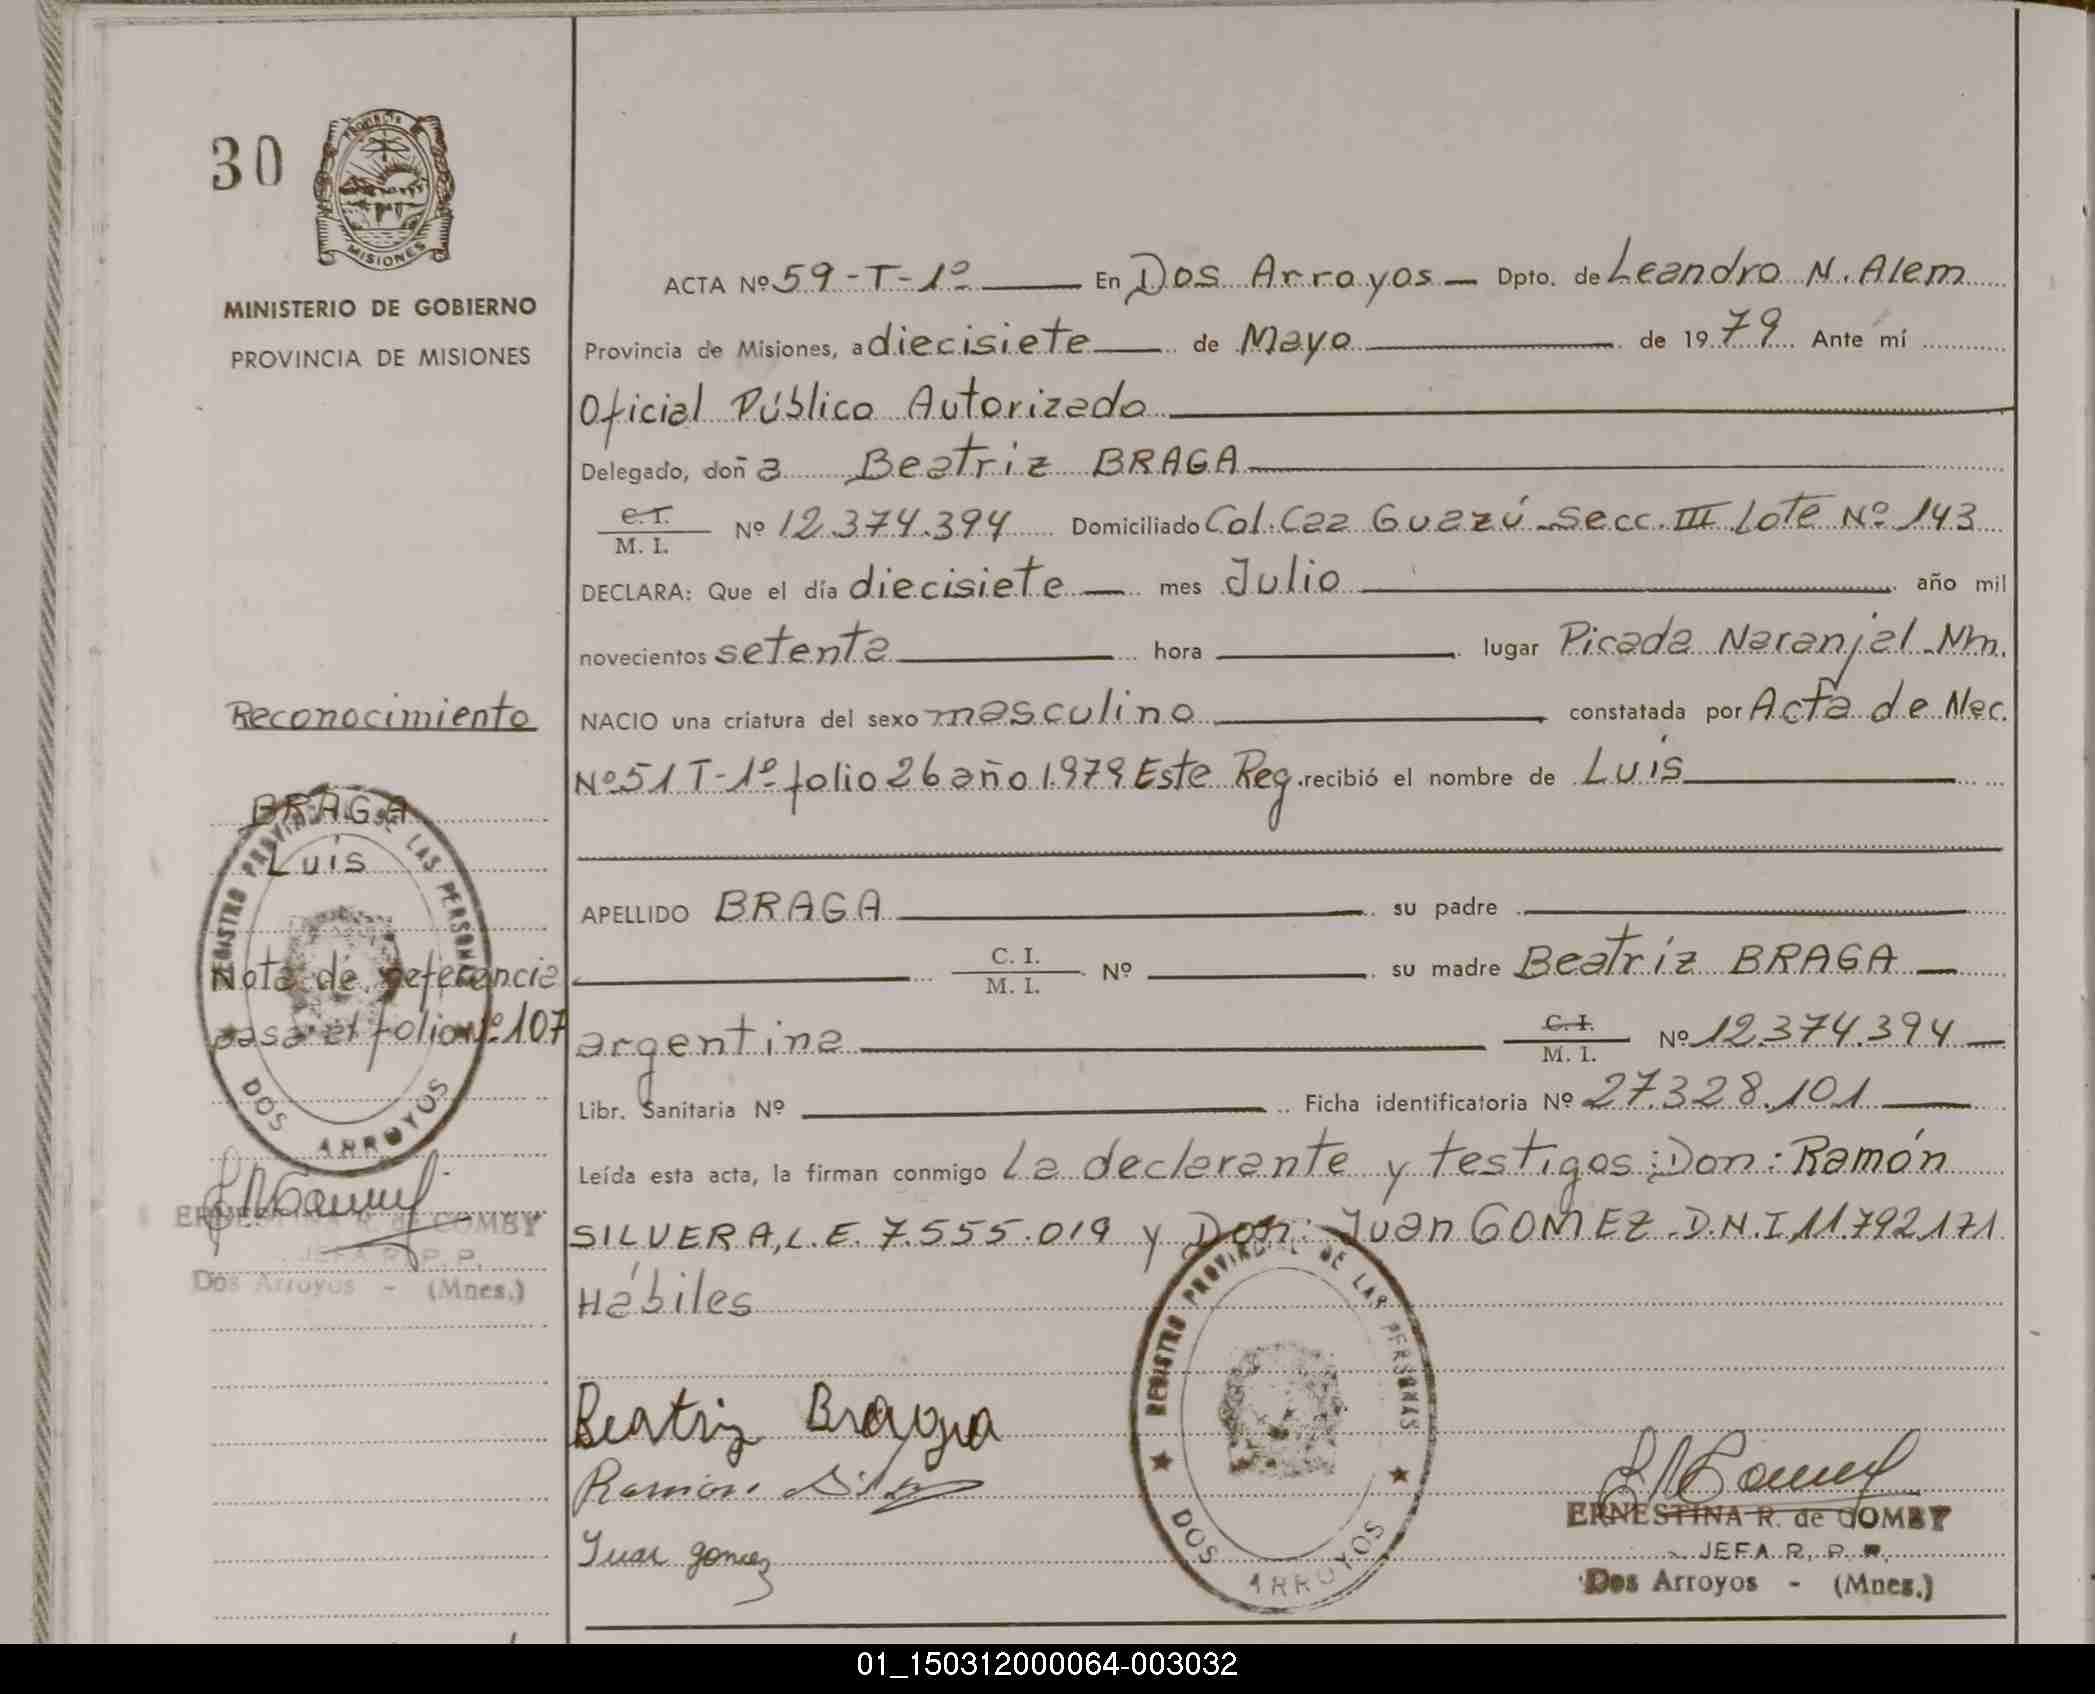 30
PROVINCIA DE
MISIONES
MINISTERIO DE GOBIERNO
PROVINCIA DE MISIONES
Reconocimiento
BRAGA
Luis
Nota de referencia
pasa el folio Nº 107
REGISTRO PROVINCIAL DE LAS PERSONAS
DOS ARROYOS
ERNESTINA R. de COMBY
JEFA R. P. P.
Dos Arroyos - (Mnes.)
ACTA Nº 59-T-1º En Dos Arroyos Dpto. de Leandro N. Alem
Provincia de Misiones, a diecisiete de Mayo de 1979 Ante mí
Oficial Público Autorizado
Delegado, doña Beatriz BRAGA
C.I. M. I. Nº 12.374.394 Domiciliado Col. Caa Guazú Secc. III Lote Nº 143
DECLARA: Que el día diecisiete mes Julio año mil
novecientos setenta hora lugar Picada Naranjal Mn.
NACIO una criatura del sexo masculino constatada por Acta de Nac.
Nº 51 T-1º folio 26 año 1.979 Este Reg. recibió el nombre de Luis
APELLIDO BRAGA su padre
C. I. M. I. Nº su madre Beatriz BRAGA
argentina C.I. M. I. Nº 12.374.394
Libr. Sanitaria Nº Ficha identificatoria Nº 27.328.101
Leída esta acta, la firman conmigo La declarante y testigos: Don: Ramón
SILVERA, L.E. 7.555.019 y Don: Juan GOMEZ D.N.I 11.792.171
Hábiles
Beatriz Braga
Ramón
Juan gomez
REGISTRO PROVINCIAL DE LAS PERSONAS
DOS ARROYOS
ERNESTINA R. de COMBY
JEFA R. P. P.
Dos Arroyos - (Mnes.)
01_150312000064-003032